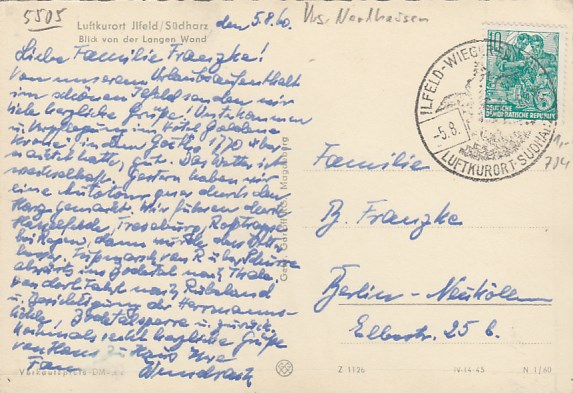 5505
Luftkurort Jlfeld/Südharz
Blick von der Langen Wand
den 5.8.60.
Krs. Nordhausen
Liebe Familie Franzke!
Von unserem Urlaubsaufenthalt
im schönen Ilfeld senden wir
viele herzliche Grüße. Unterkommen
u. Verpflegung im Hotel Goldene
Krone, in dem Goethe 1770 über
hatte, gut. Das Wetter ist
wechselhaft. Gestern haben wir
eine Autotour quer durch den
Harz gemacht. Wir fuhren durch
Hasselfelde, Treseburg, Roßtrappe
dann
Fußmarsch von
abwärts ins Bodetal nach Thale.
von dort Fahrt nach Rübeland
u. Besichtigung der Hermanns-
höhle, Bodetalsperre u. zurück.
Nochmals recht herzliche Grüße
von Haus zu Haus Ihre
Fam.
Verkaufspreis DM
Magdeburg
10
DEUTSCHE
DEMOKRATISCHE REPUBLIK
5
ILFELD-WIEGERSDORF
-5.8.
LUFTKURORT-SÜDHARZ
Familie
B. Franzke
Berlin-Neukölln
Elbestr. 25 b.
Z 1126
IV-14-45
N 1/60